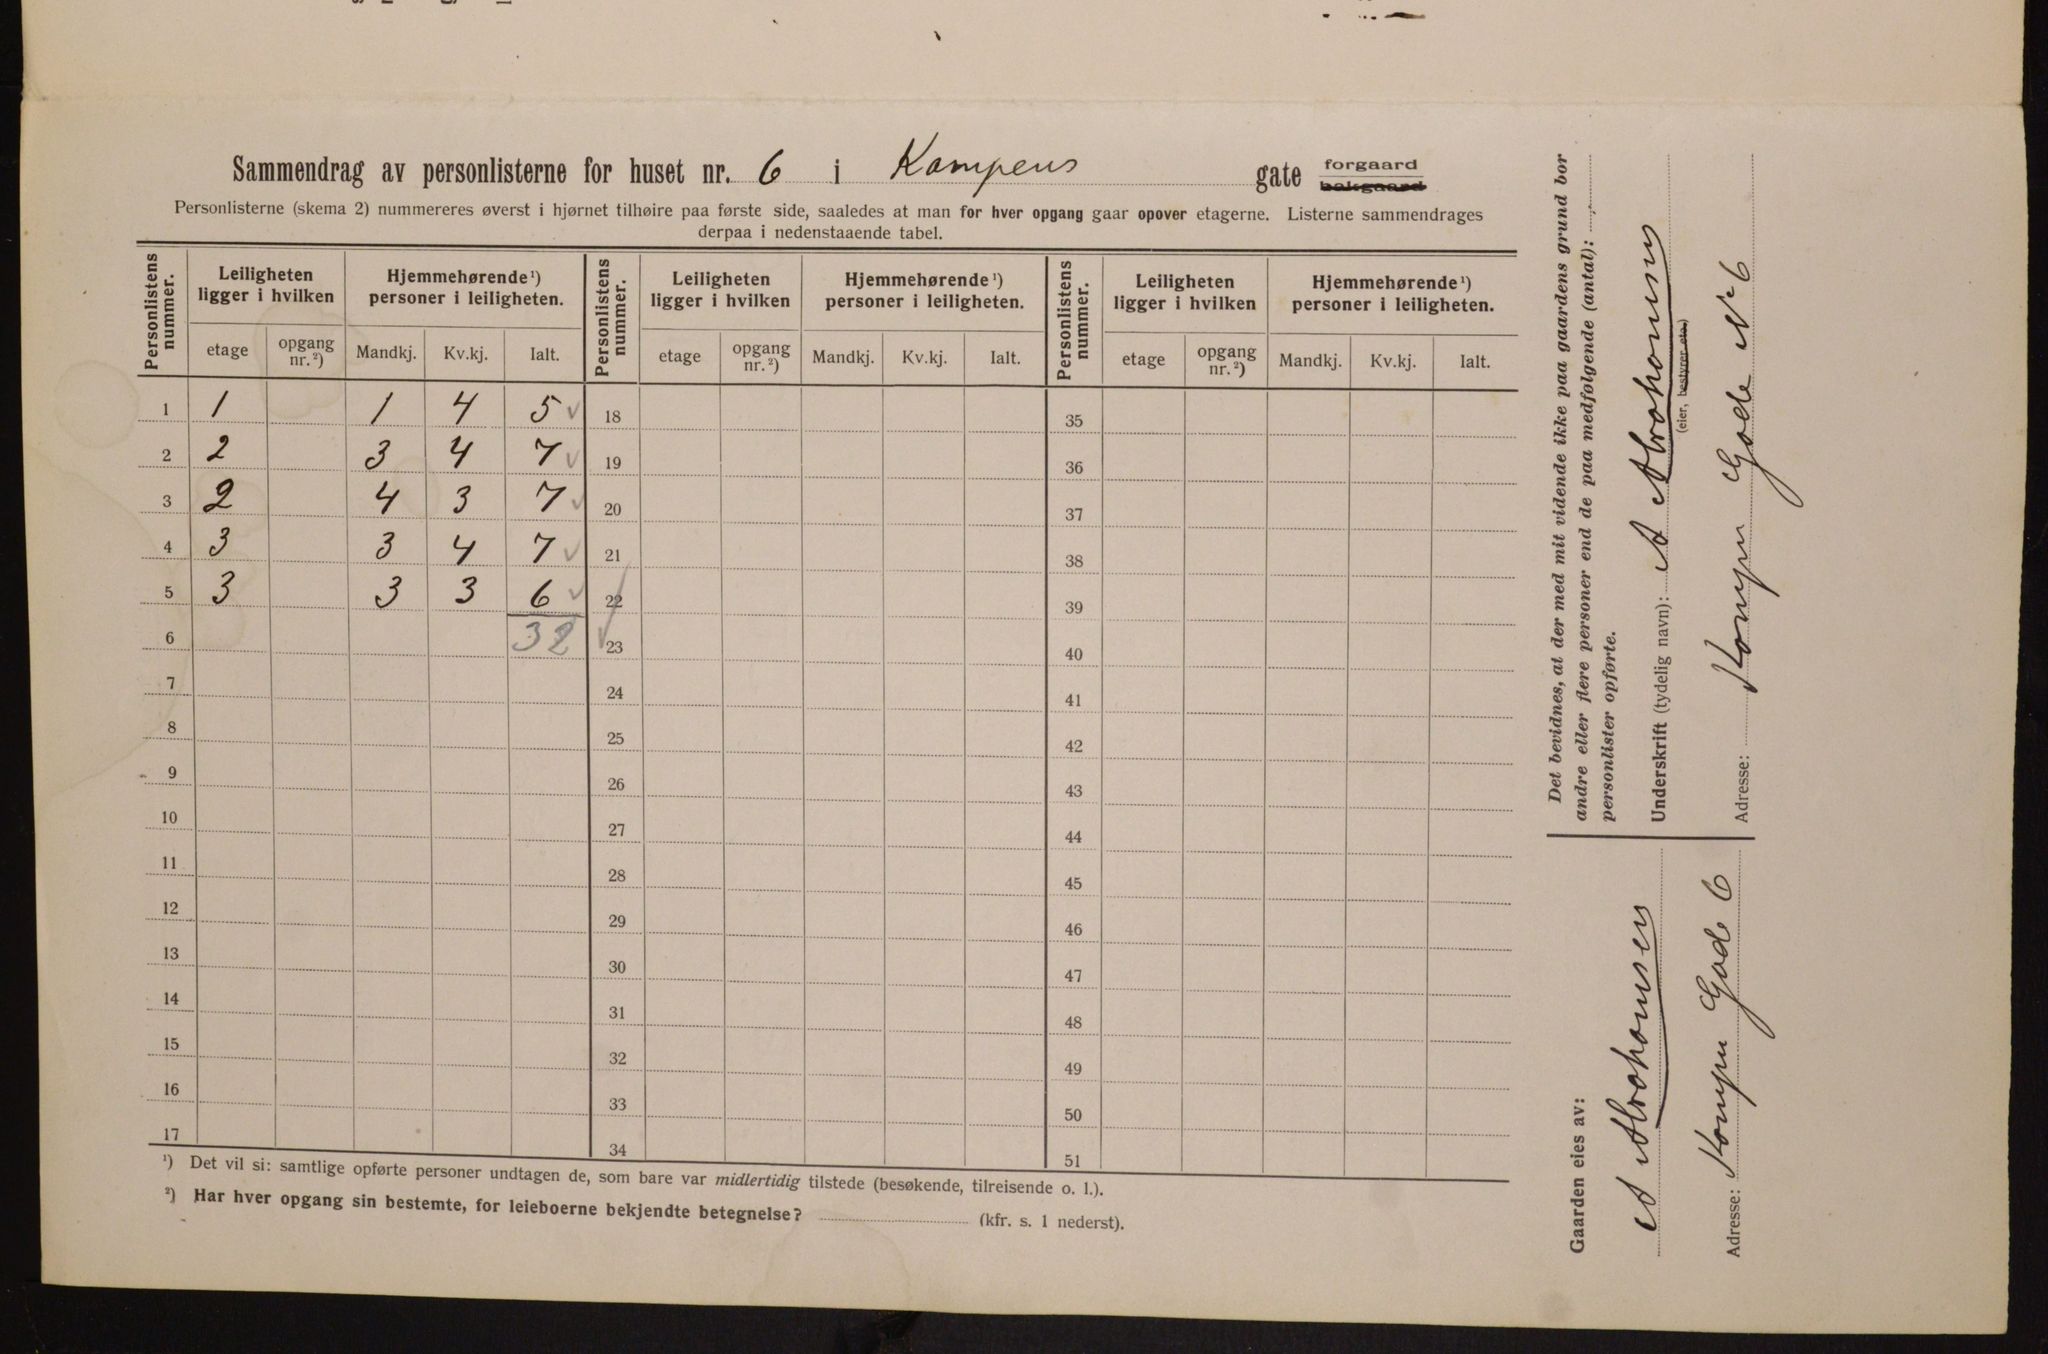 Sammendrag av personlisterne for huset nr. 6 i Kampens gate forgaard bakgaard
Personlisterne (skema 2) nummereres øverst i hjørnet tilhøire paa første side, saaledes at man for hver opgang gaar opover etagerne. Listerne sammendrages
derpaa i nedenstaaende tabel.
Personlistens nummer. Leiligheten ligger i hvilken Hjemmehørende ¹) personer i leiligheten. Personlistens nummer. Leiligheten ligger i hvilken Hjemmehørende ¹) personer i leiligheten. Personlistens nummer. Leiligheten ligger i hvilken Hjemmehørende ¹) personer i leiligheten.
etage opgang nr. ²) Mandkj. Kv.kj. Ialt. etage opgang nr. ²) Mandkj. Kv.kj. Ialt. etage opgang nr. ²) Mandkj. Kv.kj. Ialt.
1 1 1 4 5 ✓ 18 35
2 2 3 4 7 ✓ 19 36
3 2 4 3 7 ✓ 20 37
4 3 3 4 7 ✓ 21 38
5 3 3 3 6 ✓ 22 39
6 32 ✓ 23 40
7 24 41
8 25 42
9 26 43
10 27 44
11 28 45
12 29 46
13 30 47
14 31 48
15 32 49
16 33 50
17 34 51
¹) Det vil si: samtlige opførte personer undtagen de, som bare var midlertidig tilstede (besøkende, tilreisende o. l.).
²) Har hver opgang sin bestemte, for leieboerne bekjendte betegnelse? (kfr. s. 1 nederst).
Det bevidnes, at der med mit vidende ikke paa gaardens grund bor
andre eller flere personer end de paa medfølgende (antal):
personlister opførte.
Underskrift (tydelig navn): A Abrahamsen
(eier, bestyrer etc.)
Adresse: Kampn Gade No 6
Gaarden eies av:
A Abrahamsen
Adresse: Kampn Gade 6